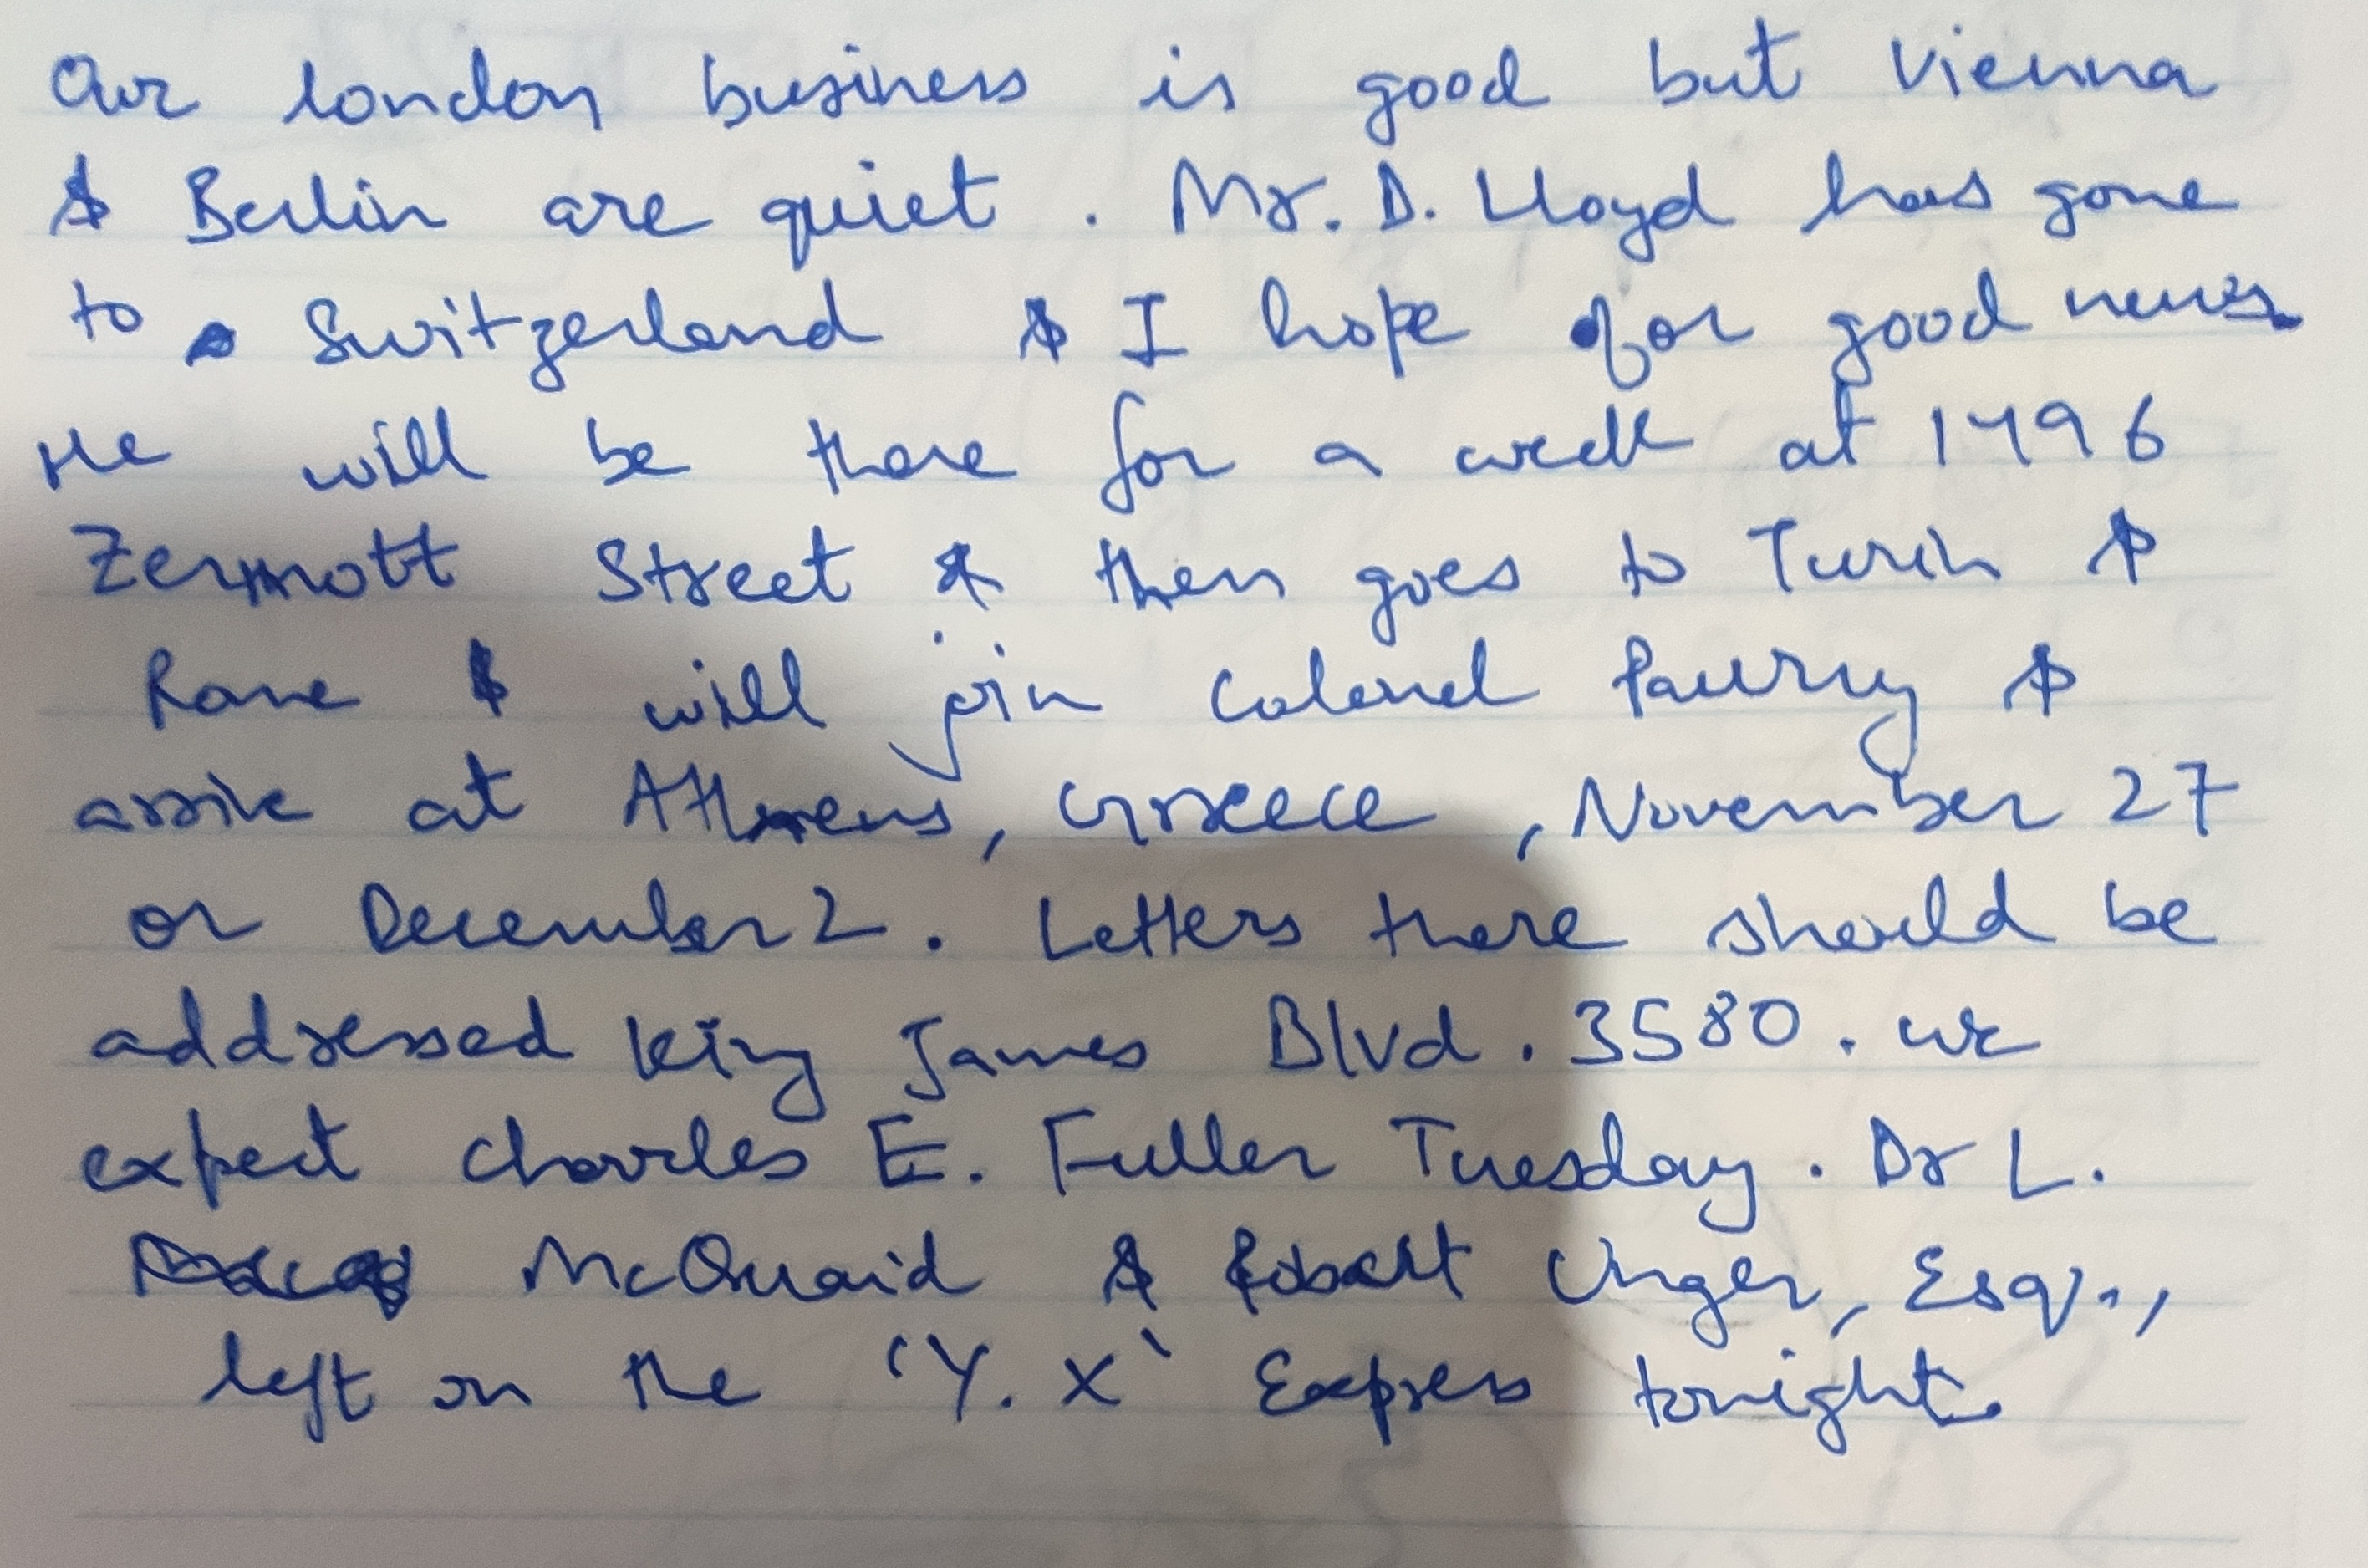 Our london business is good but Vienna
& Berlin are quiet. Mr. D. Lloyd has gone
to Switzerland & I hope for good news.
He will be there for a week at 1496
Zermott Street & then goes to Turin &
Rome & will join Colonel Parry &
arrive at Athens, Greece, November 27
or December 2. Letters there should be
addressed King James Blvd. 3580. We
expect Charles E. Fuller Tuesday. Dr L.
McQuaid & Robert Unger, Esq.,
left on the 'Y. X' Express tonight.